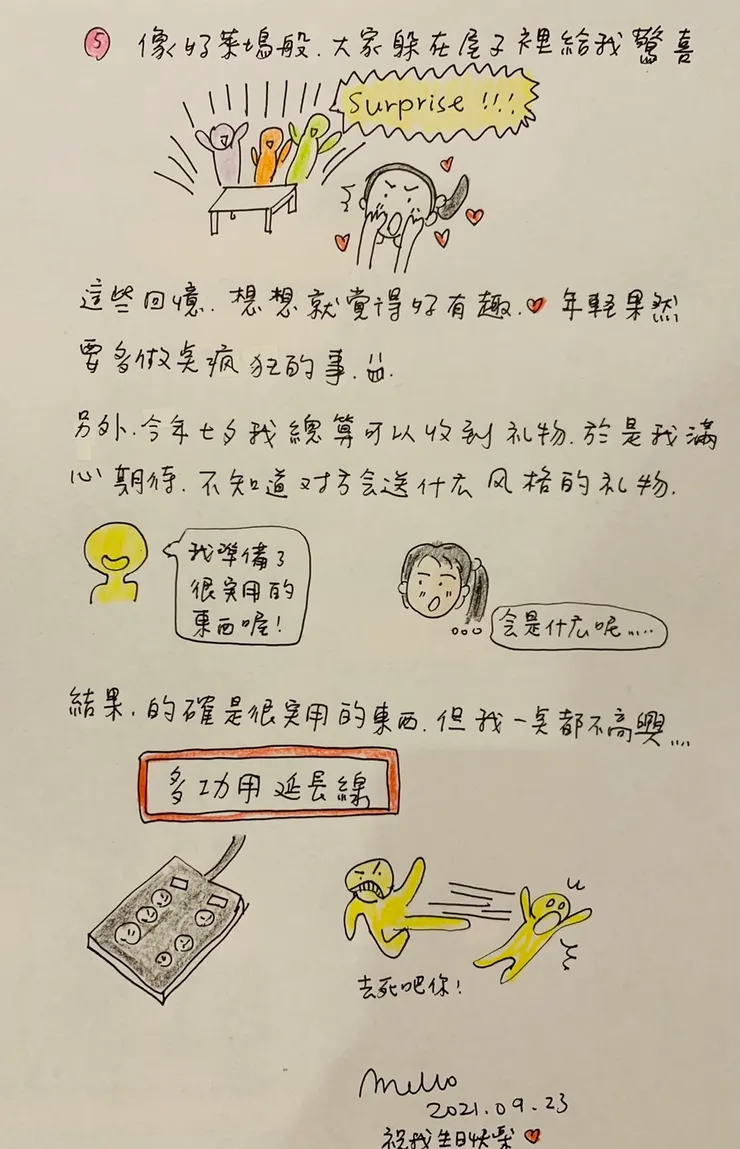 ⑤ 像好萊塢般.大家躲在屋子裡給我驚喜
Surprise !!!
這些回憶.想想就覺得好有趣.♥年輕果然
要多做点瘋狂的事.
另外.今年七夕我總算可以收到礼物.於是我滿
心期待.不知道对方会送什么风格的礼物.
我準備了
很实用的
東西喔!
会是什么呢.....
結果.的確是很实用的東西.但我一点都不高興....
多功用延長線
去死吧你!
Mello
2021.09.23
祝我生日快樂♥